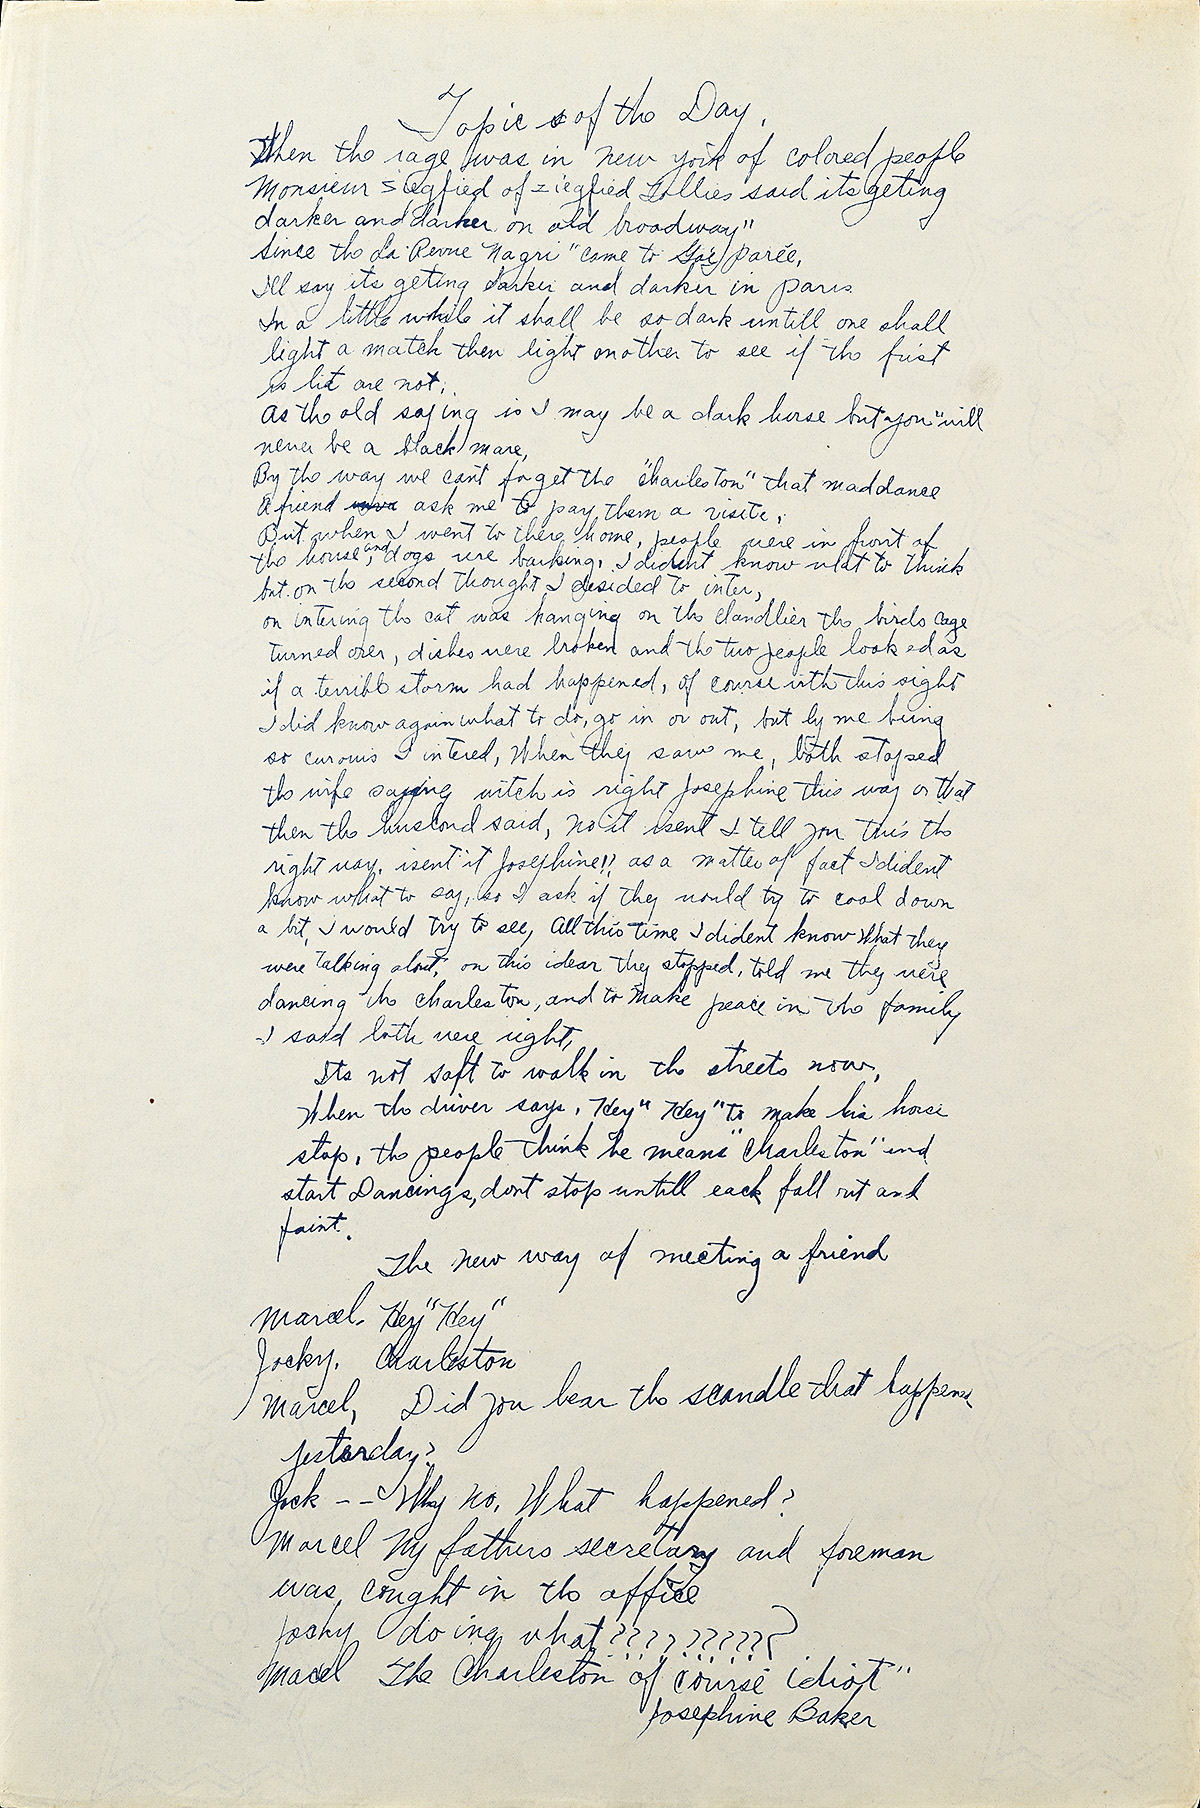 Topics of the Day.
When the rage was in New york of colored people
Monsieur Siegfied of Ziegfied Follies said its geting
darker and darker on old broadway"
Since the La Revue Nagri" come to Gáe Parée,
I'll say its geting darker and darker in paris
In a little while it shall be so dark untill one shall
light a match then light another to see if the first
is lit are not;
As the old saying is I may be a dark horse but "you" will
never be a black mare,
By the way we cant forget the "Charleston" that mad dance
A friend ask me to pay them a visite,
But when I went to there home, people were in front of
the house, and dogs were barking, I dident know what to think
but on the second thought I desided to inter,
on intering the cat was hanging on the chandlier the birds cage
turned over, dishes were broken and the two people looked as
if a terrible storm had happened, of course with this sight
I did know again what to do, go in or out, but by me being
so curouis I intered, When they saw me, both stoped
the wife saying witch is right Josephine this way or that
then the husband said, No it isent I tell you this the
right way, isent it Josephine!!, as a matter of fact I dident
know what to say, so I ask if they would try to cool down
a bit, I would try to see, All this time I dident know What they
were talking about, on this idear they stopped, told me they were
dancing the Charleston, and to make peace in the family
I said both were right,
Its not saft to walk in the streets now,
When the driver says, Hey" Hey" to make his horse
stop, the people think he means "Charleston" and
start Dancings, dont stop untill each fall out and
faint.
The new way of meeting a friend
Marcel. Hey" Hey"
Jocky. Charleston
Marcel, Did you hear the scandle that happened
yesterday?
Jock -- Why No, What happened?
Marcel My fathers secretary and foreman
was caught in the office
Jocky doing what??????????
Macel The Charleston of course idiot"
Josephine Baker